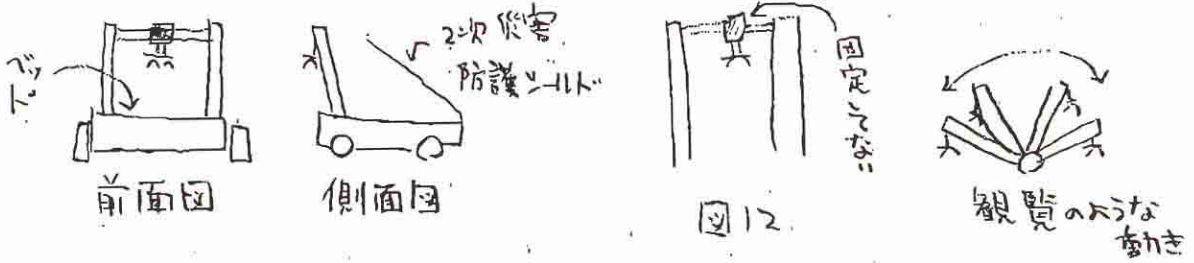 ベッド
前面図
2次災害
防護シールド
側面図
固定してない
図12.
観覧のような
動き